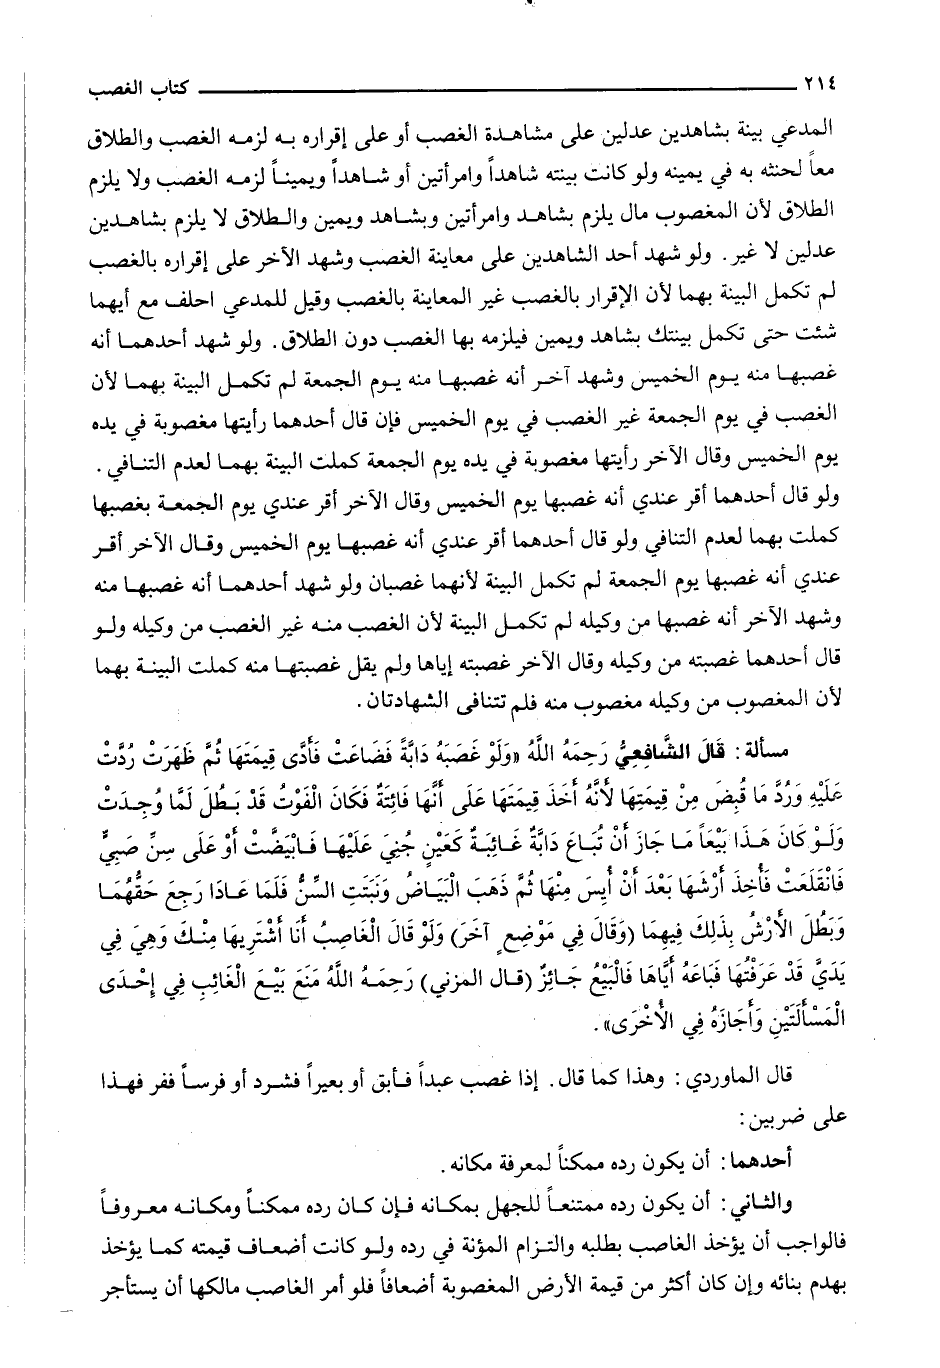 ٢١٤ كتاب الغصب
المدعي بينة بشاهدين عدلين على مشاهدة الغصب أو على إقراره به لزمه الغصب والطلاق
معاً لحنثه به في يمينه ولو كانت بينته شاهداً وامرأتين أو شاهداً ويميناً لزمه الغصب ولا يلزم
الطلاق لأن المغصوب مال يلزم بشاهد وامرأتين وبشاهد ويمين والطلاق لا يلزم بشاهدين
عدلين لا غير. ولو شهد أحد الشاهدين على معاينة الغصب وشهد الآخر على إقراره بالغصب
لم تكمل البينة بهما لأن الإقرار بالغصب غير المعاينة بالغصب وقيل للمدعي احلف مع أيهما
شئت حتى تكمل بينتك بشاهد ويمين فيلزمه بها الغصب دون الطلاق. ولو شهد أحدهما أنه
غصبها منه يوم الخميس وشهد آخر أنه غصبها منه يوم الجمعة لم تكمل البينة بهما لأن
الغصب في يوم الجمعة غير الغصب في يوم الخميس فإن قال أحدهما رأيتها مغصوبة في يده
يوم الخميس وقال الآخر رأيتها مغصوبة في يده يوم الجمعة كملت البينة بهما لعدم التنافي.
ولو قال أحدهما أقر عندي أنه غصبها يوم الخميس وقال الآخر أقر عندي يوم الجمعة بغصبها
كملت بهما لعدم التنافي ولو قال أحدهما أقر عندي أنه غصبها يوم الخميس وقال الآخر أقر
عندي أنه غصبها يوم الجمعة لم تكمل البينة لأنهما غصبان ولو شهد أحدهما أنه غصبها منه
وشهد الآخر أنه غصبها من وكيله لم تكمل البينة لأن الغصب منه غير الغصب من وكيله ولو
قال أحدهما غصبته من وكيله وقال الآخر غصبته إياها ولم يقل غصبتها منه كملت البينة بهما
لأن المغصوب من وكيله مغصوب منه فلم تتنافى الشهادتان.
مسألة: قَالَ الشَّافِعِيُّ رَحِمَهُ اللَّهُ «وَلَوْ غَصَبَهُ دَابَّةً فَضَاعَتْ فَأَدَّى قِيمَتَهَا ثُمَّ ظَهَرَتْ رُدَّتْ
عَلَيْهِ وَرُدَّ مَا قُبِضَ مِنْ قِيمَتِهَا لأَنَّهُ أَخَذَ قِيمَتَهَا عَلَى أَنَّهَا فَائِتَةٌ فَكَانَ الْفَوْتُ قَدْ بَطُلَ لَمَّا وُجِدَتْ
وَلَوْ كَانَ هَذَا بَيْعَاً مَا جَازَ أَنْ تُبَاعَ دَابَّةٌ غَائِبَةٌ كَعَيْنٍ جُنِيَ عَلَيْهَا فَابْيَضَّتْ أَوْ عَلَى سِنِّ صَبِيٍّ
فَانْقَلَعَتْ فَأُخِذَ أَرْشُهَا بَعْدَ أَنْ أُيِسَ مِنْهَا ثُمَّ ذَهَبَ الْبَيَاضُ وَنَبَتَتِ السِّنُّ فَلَمَا عَادَا رَجِعَ حَقُّهُمَا
وَبَطُلَ الأَرْشُ بِذَلِكَ فِيهِمَا (وَقَالَ فِي مَوْضِعٍ آخَرَ) وَلَوْ قَالَ الْغَاصِبُ أَنَا أَشْتَرِيهَا مِنْكَ وَهِيَ فِي
يَدَيَّ قَدْ عَرَفْتُهَا فَبَاعَهُ أَيَّاهَا فَالْبَيْعُ جَائِزٌ (قال المزني) رَحِمَهُ اللَّهُ مَنَعَ بَيْعَ الْغَائِبِ فِي إِحْدَى
الْمَسْأَلَتَيْنِ وَأَجَازَهُ فِي الأُخْرَى».
قال الماوردي: وهذا كما قال. إذا غصب عبداً فأبق أو بعيراً فشرد أو فرساً ففر فهذا
على ضربين:
أحدهما: أن يكون رده ممكناً لمعرفة مكانه.
والثاني: أن يكون رده ممتنعاً للجهل بمكانه فإن كان رده ممكناً ومكانه معروفاً
فالواجب أن يؤخذ الغاصب بطلبه والتزام المؤنة في رده ولو كانت أضعاف قيمته كما يؤخذ
بهدم بنائه وإن كان أكثر من قيمة الأرض المغصوبة أضعافاً فلو أمر الغاصب مالكها أن يستأجر